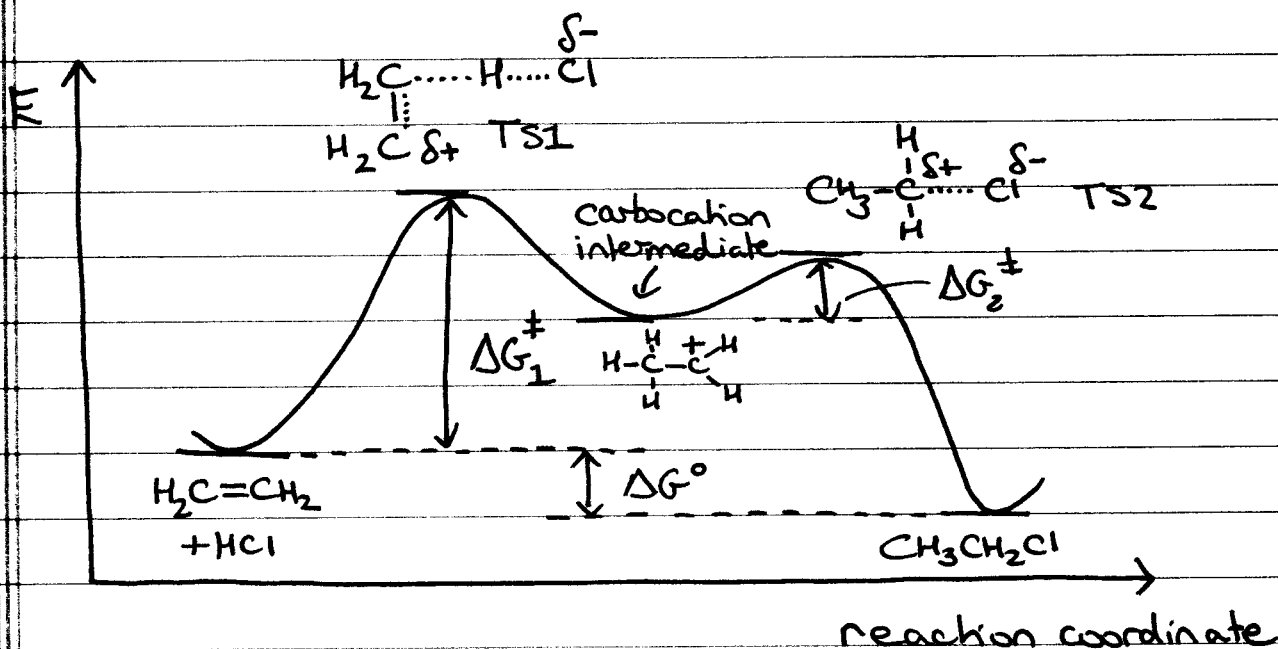 E
δ-
H₂C·····H·····Cl
H₂C δ+ TS1
H
CH₃-C·····Cl TS2
δ+ δ-
H
carbocation
intermediate
ΔG₂‡
ΔG₁‡
H
H-C-C+
H
H
H
H₂C=CH₂
+HCl
ΔG°
CH₃CH₂Cl
reaction coordinate